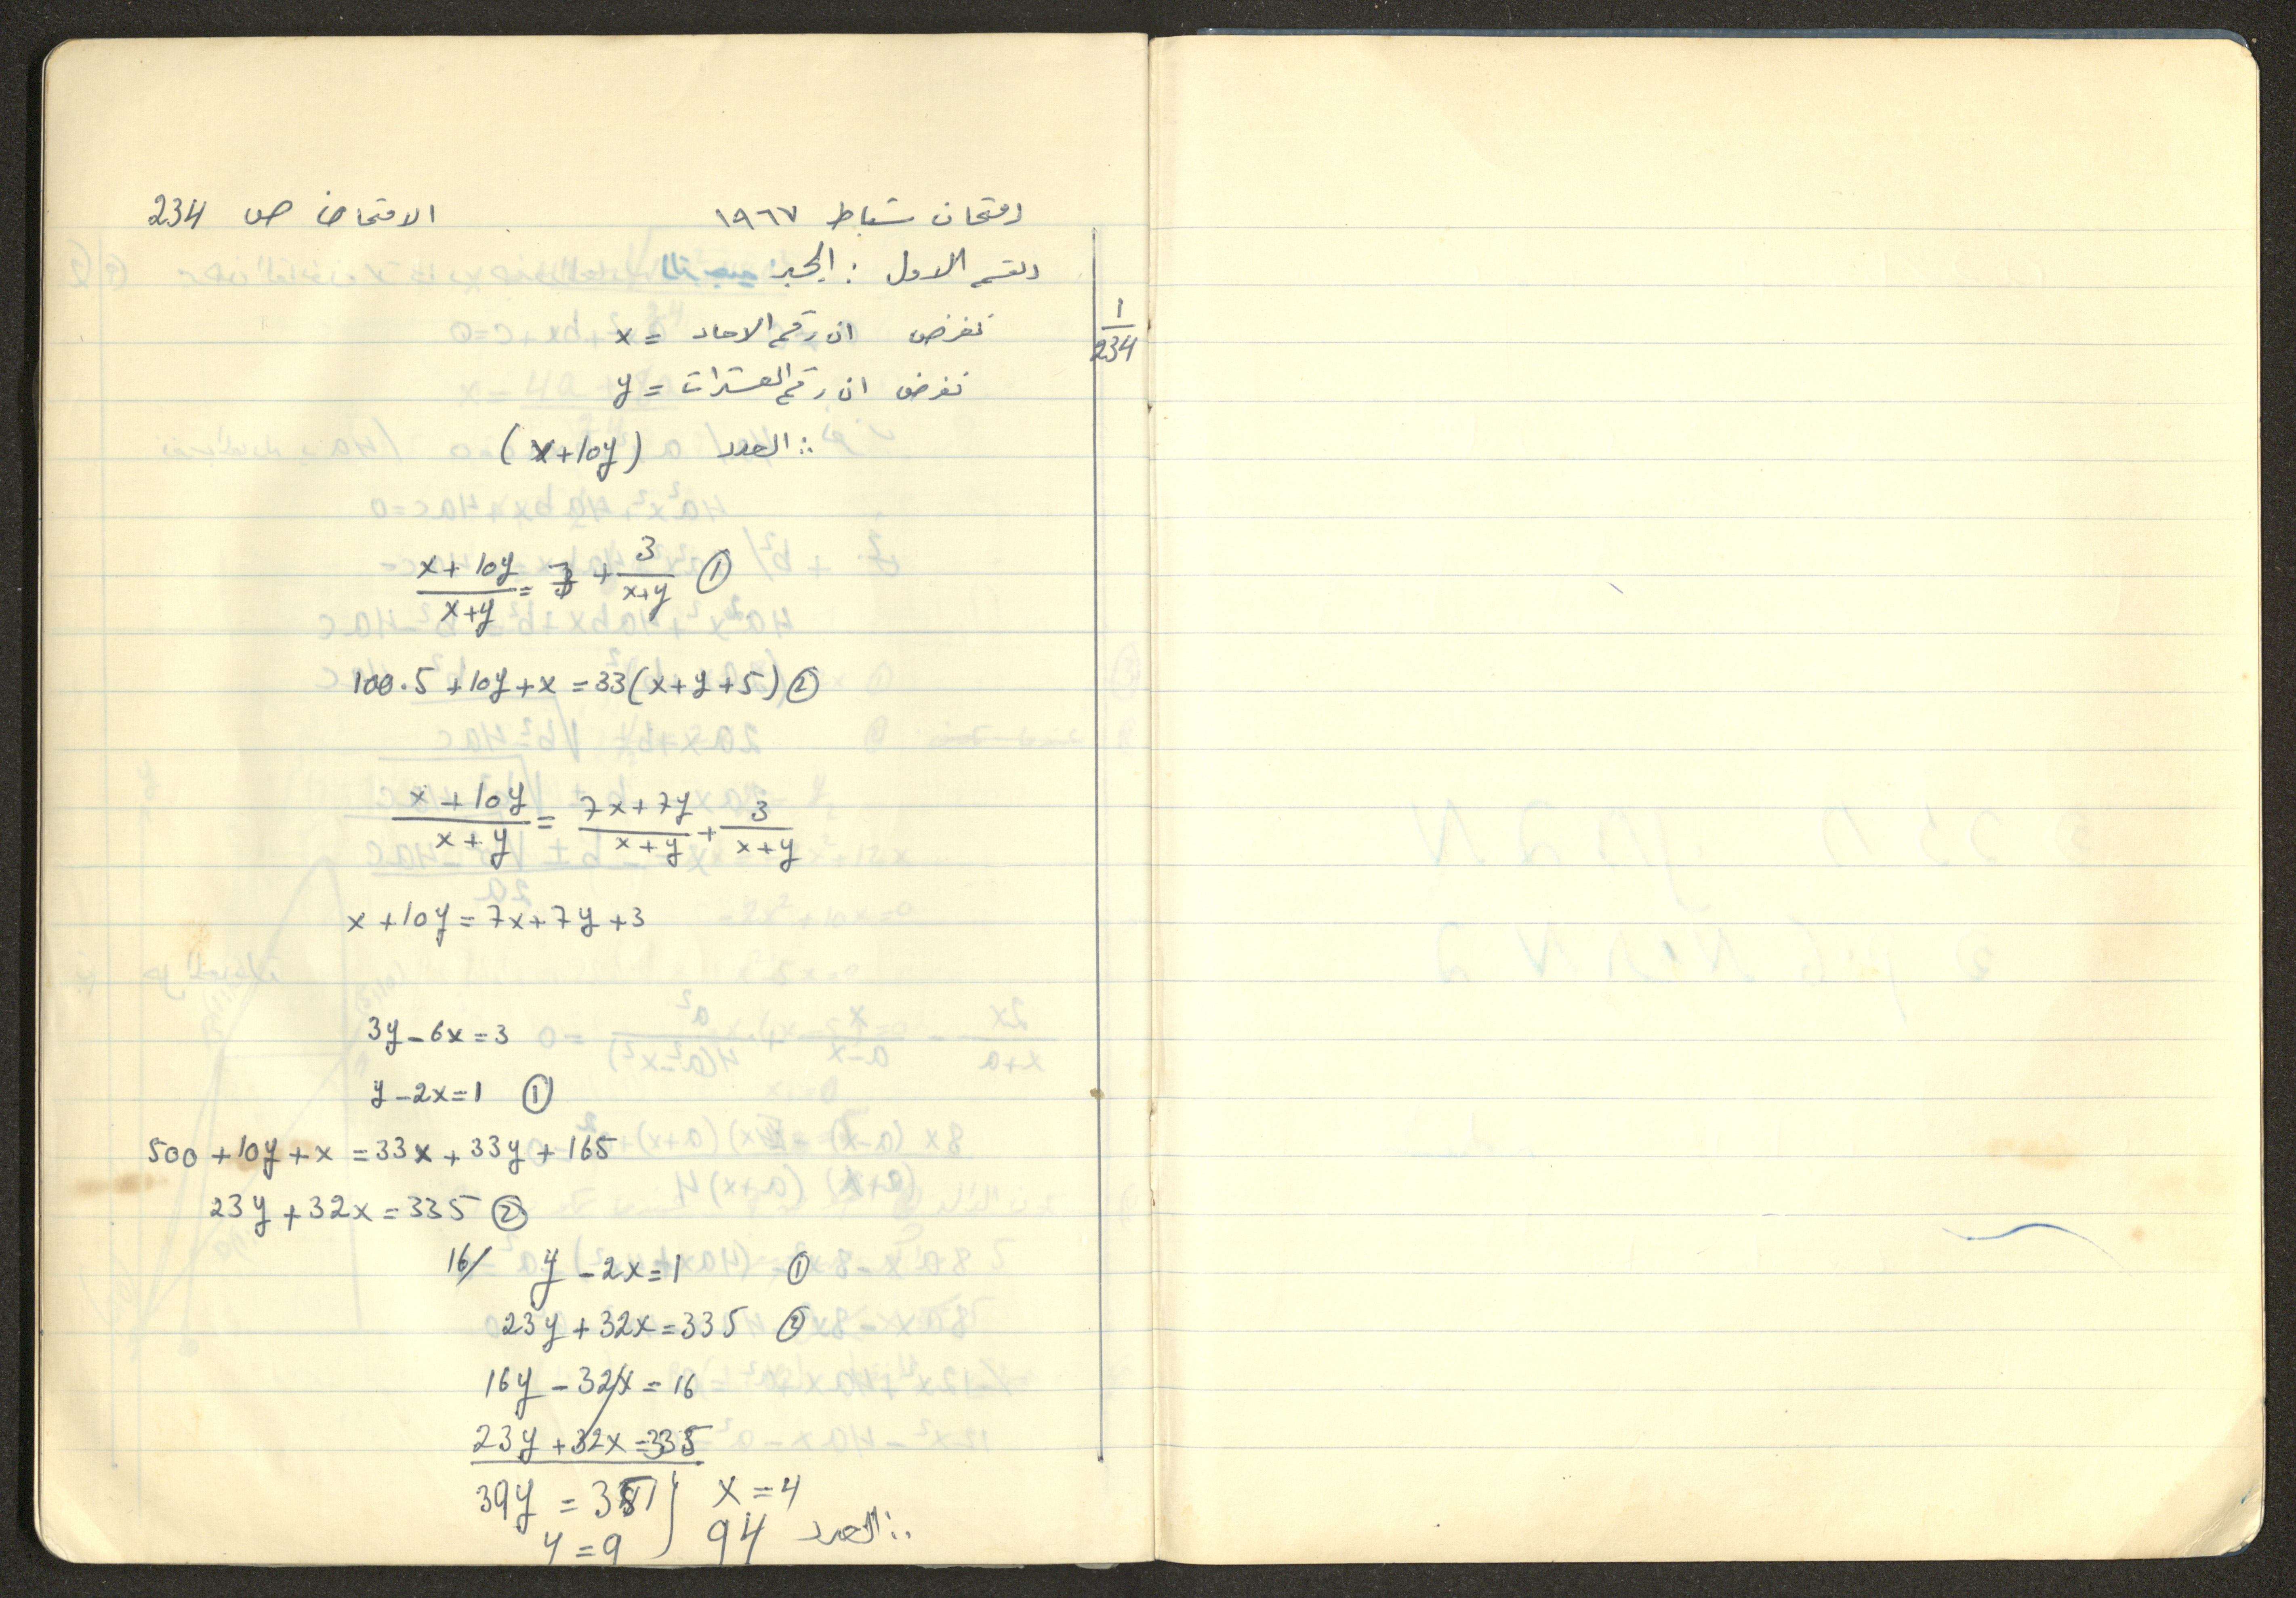 امتحان شباط ١٩٦٧ الامتحان ص 234
القسم الاول : الجبر
1/234
نفرض ان رقم الاحاد = x
نفرض ان رقم العشرات = y
∴ العدد (x+10y)
(x+10y)/(x+y) = 7 + 3/(x+y) ①
100.5+10y+x=33(x+y+5) ②
(x+10y)/(x+y) = (7x+7y)/(x+y) + 3/(x+y)
x+10y=7x+7y+3
3y-6x=3
y-2x=1 ①
500+10y+x=33x+33y+165
23y+32x=335 ②
16/ y-2x=1 ①
23y+32x=335 ②
16y-32x=16
23y+32x=335
39y=351 } x=4
y=9 } 94 ∴ العدد